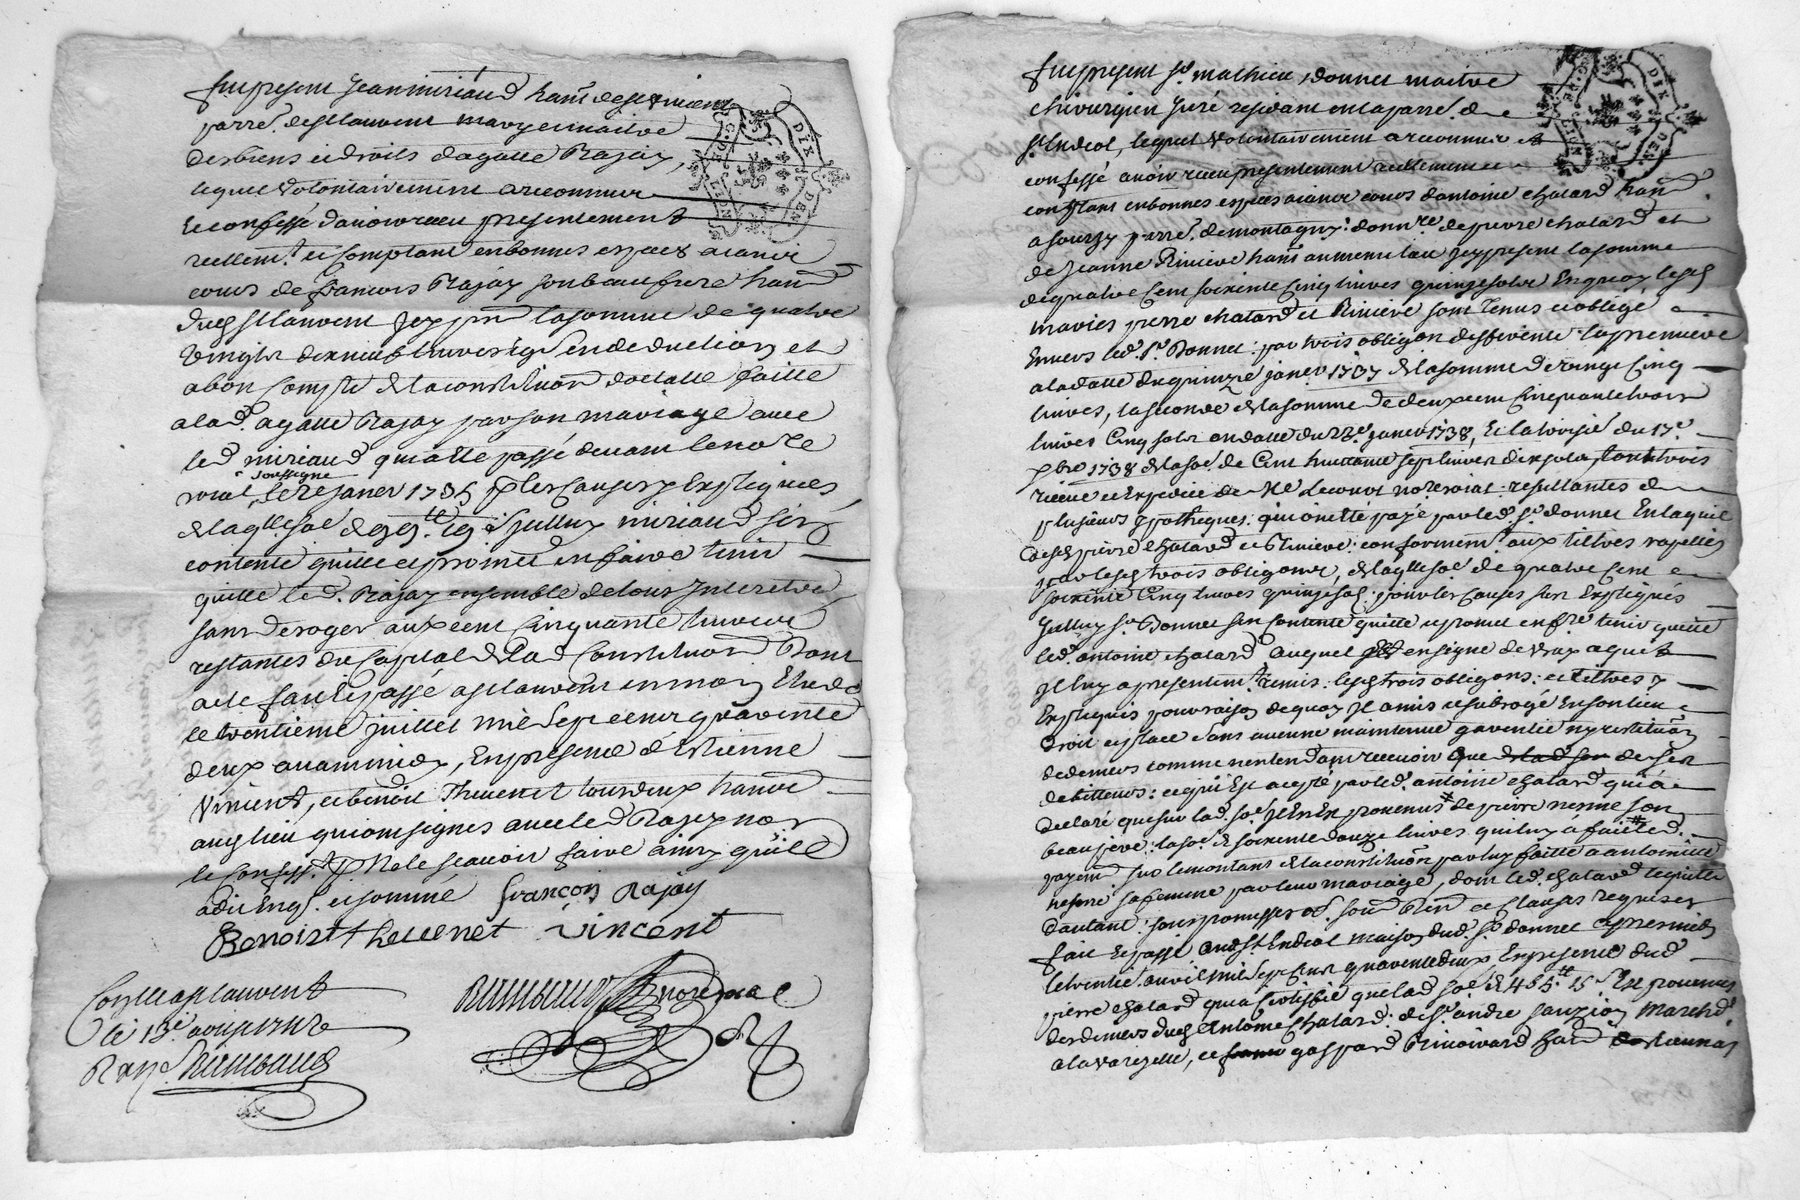 fut present Jean miriaud habt de
parre. de st laurent mary et maitre
des biens et droits d'agatte Rajay,
lequel volontairement a reconnu
Et confessé d'avoir receu presentement
reellemt. et comptant en bonnes especes aiant
cours de francois Rajay son beau frere habt
dud st laurent la somme de quatre
vingts dix neuf livres en deduction et
a bon compte de la constitution dotalle faitte
a lad. agatte Rajay par son mariage avec
led miriaud qui a été passé devant le nore
soussigne
roial le janer 1735 pr les causes y Expliquées
de laqlle soe de 99.lt 19.s led miriaud s'est
contenté quitte et promet en faire tenir
quitte led. Rajay ensemble de tous Interets
sans deroger aux cent cinquante livres
restantes du capital de lad constitution Dont
acte fait et passé a st laurent en mon Etude
le trentieme juillet mil sept cents quarente
deux avant midy, En presence d'Estienne
Vincent, et benoit Thevenet tous deux habts
aud lieu qui ont signés avec led Rajay non
le confesst pr ne le scavoir faire ainsy qu'il
a dit Enqs. et sommé françois Rajay
Benoist thevenet vincent
Conlle a st laurent
le 13e aoust 1742
Rambaud
DIX DEN.
fut present sr mathieu donnet maitre
chirurgien juré residant en la parre. de
st Andeol, lequel volontairement a reconnu et
confessé avoir receu presentement reellement
comptant en bonnes especes aiants cours d'antoine chatard habt
a sourzy parre. de montagny: donnre de pierre chatard et
de Jeanne Riviere habt au meme lieu y present la somme
de quatre cent soixente cinq livres quinze sols En quoy lesd
maries pierre chatard et Riviere sont tenus et obligé
Envers led. sr Donnet: par trois obligaon differente la premiere
a la datte du quinze janer 1737 de la somme de vingt cinq
livres, la seconde de la somme de deux cent cinquante trois
livres cinq sols en datte du 22e janer 1738, Et la troisie du 17e
xbre 1738 de la soe de cent huittante sept livres dix sols, tous trois
receue et Expediée de Me Leconot nore roial resultantes de
plusieurs ypotheques: qui ont été payé par led. sr donnet En l'aquit
desd pierre chatard et Riviere: conformemt. aux tiltres rapellés
par lesd trois obligaons, de laqlle soe de quatre cent
soixente cinq livres quinze sols: pour les causes sus Expliqués
Jcelluy sr Donnet s'en contente quitte et promet en fre tenir quitte
led. antoine chatard auquel en signe de vray aquit
Jl luy a presentemt. remis: lesd trois obligaons: et tiltres y
Expliqués pour raison de quoy Jl a mis et subrogé En son lieu
droit et place sans aucune maintenue garentie ny restitution
de deniers comme n'entendant recevoir que de ses
debitteurs: ce qui Est acepté par led. antoine chatard qui a
declaré que sur lad. soe Jl En Ext provenus de pierre nesme son
beau pere: la soe de soixente douze livres qui luy a fait led.
payemt. sur le montant de la constitution par luy faitte a antoinette
nesme sa femme par leur mariage, dont led. chatard le quitte
d'autant: sous promesses obl. soum Ren et clauses requises
fait Et passé aud st Andeol maison dud. sr donnet apres midy
le trentie. avril mil sept cent quarente deux En presence dud
pierre chatard qui a certiffié que lad soe de 465.lt 15s. Est provenue
des deniers dud Antoine chatard: de sr andre sauzion march.d
a la varizelle, et gaspard Rivoirard habt
DIX DEN.